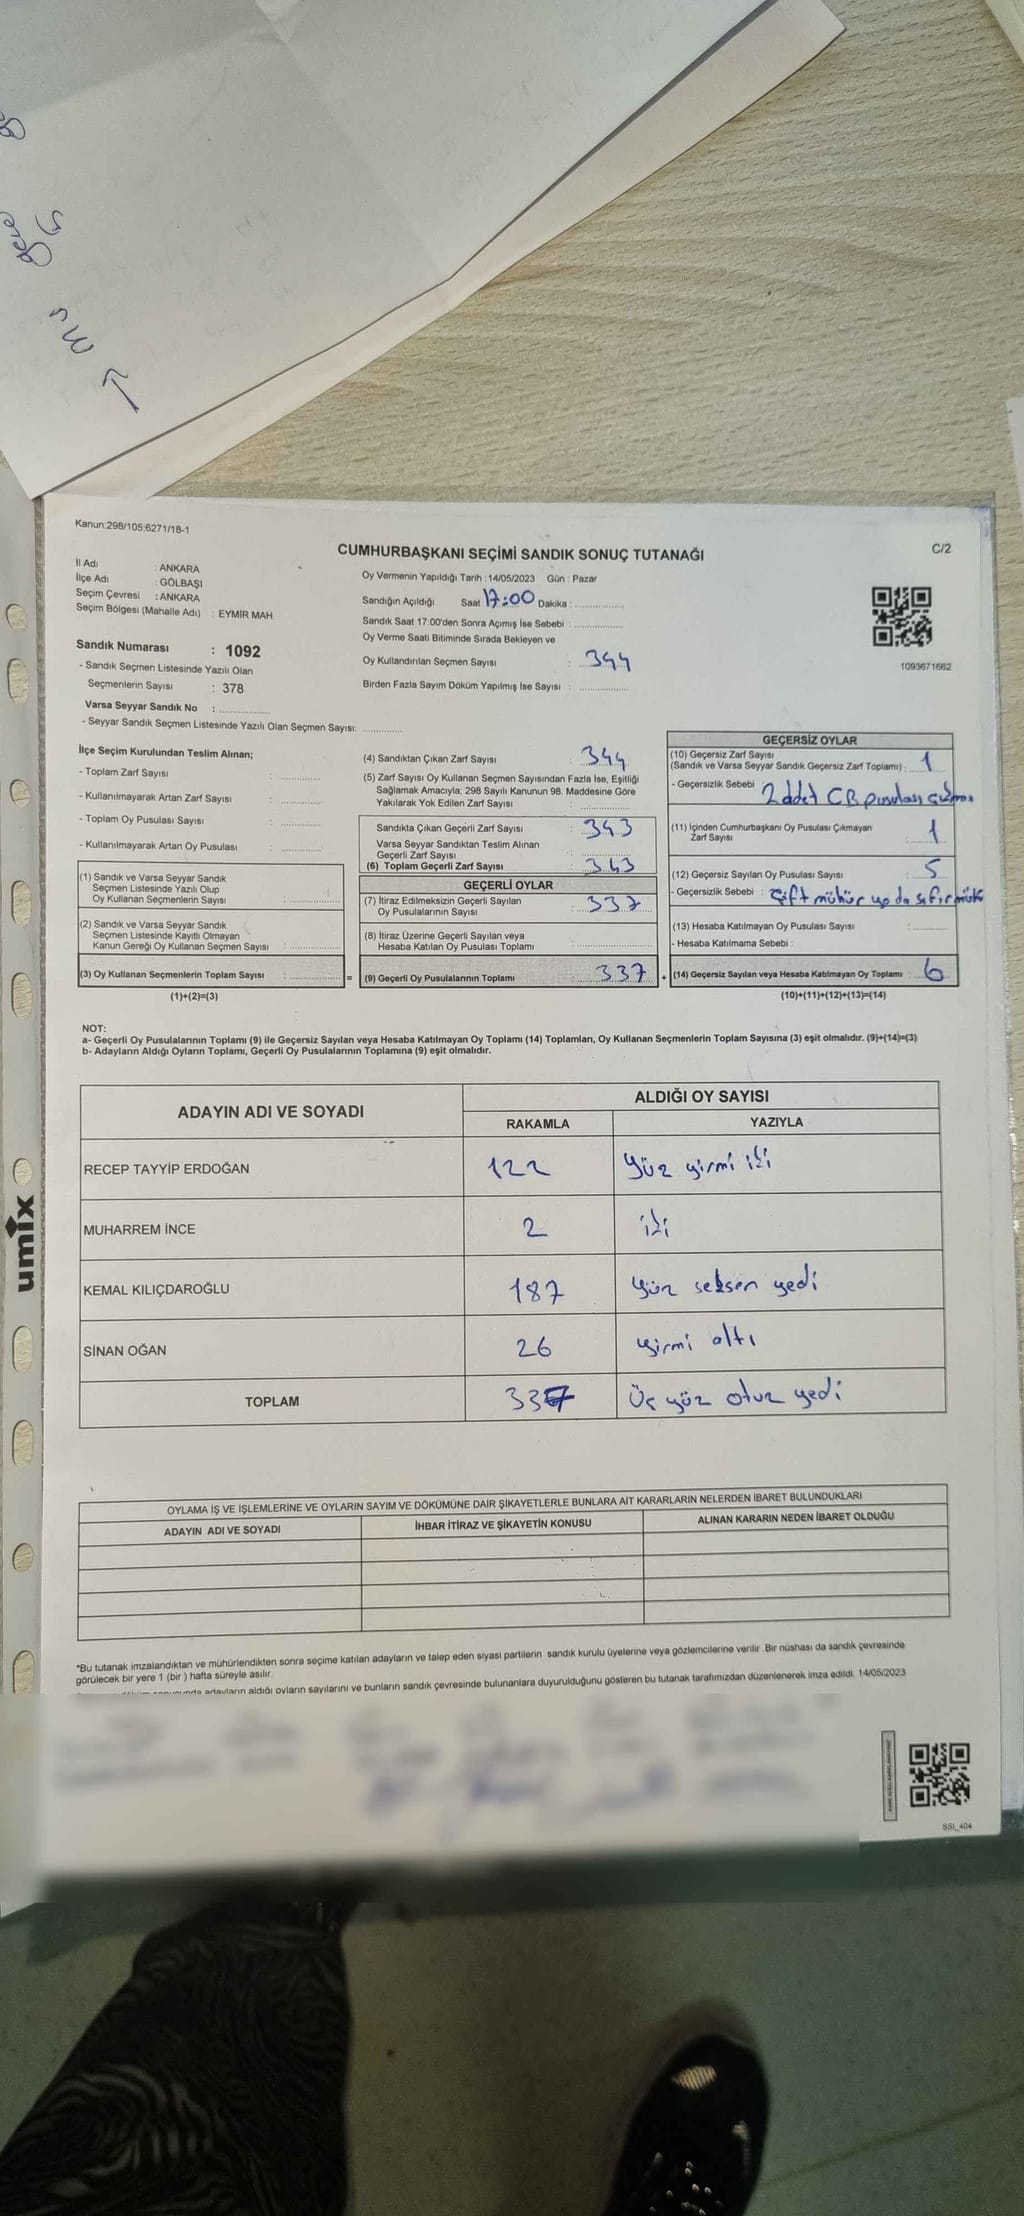 Kanun:298/105;6271/18-1
C/2
CUMHURBAŞKANI SEÇİMİ SANDIK SONUÇ TUTANAĞI
İl Adı : ANKARA
İlçe Adı : GÖLBAŞI
Seçim Çevresi : ANKARA
Seçim Bölgesi (Mahalle Adı) : EYMİR MAH
Sandık Numarası : 1092
- Sandık Seçmen Listesinde Yazılı Olan
Seçmenlerin Sayısı : 378
Varsa Seyyar Sandık No :
- Seyyar Sandık Seçmen Listesinde Yazılı Olan Seçmen Sayısı:
Oy Vermenin Yapıldığı Tarih : 14/05/2023 Gün : Pazar
Sandığın Açıldığı Saat 17:00 Dakika :
Sandık Saat 17:00'den Sonra Açımış İse Sebebi :
Oy Verme Saati Bitiminde Sırada Bekleyen ve
Oy Kullandırılan Seçmen Sayısı : 344
Birden Fazla Sayım Döküm Yapılmış İse Sayısı :
1093671662
İlçe Seçim Kurulundan Teslim Alınan;
- Toplam Zarf Sayısı :
- Kullanılmayarak Artan Zarf Sayısı :
- Toplam Oy Pusulası Sayısı :
- Kullanılmayarak Artan Oy Pusulası :
(1) Sandık ve Varsa Seyyar Sandık
Seçmen Listesinde Yazılı Olup
Oy Kullanan Seçmenlerin Sayısı :
(2) Sandık ve Varsa Seyyar Sandık
Seçmen Listesinde Kayıtlı Olmayan
Kanun Gereği Oy Kullanan Seçmen Sayısı :
(3) Oy Kullanan Seçmenlerin Toplam Sayısı : =
(1)+(2)=(3)
(4) Sandıktan Çıkan Zarf Sayısı : 344
(5) Zarf Sayısı Oy Kullanan Seçmen Sayısından Fazla İse, Eşitliği
Sağlamak Amacıyla; 298 Sayılı Kanunun 98. Maddesine Göre
Yakılarak Yok Edilen Zarf Sayısı :
Sandıkta Çıkan Geçerli Zarf Sayısı : 343
Varsa Seyyar Sandıktan Teslim Alınan
Geçerli Zarf Sayısı :
(6) Toplam Geçerli Zarf Sayısı : 343
GEÇERLİ OYLAR
(7) İtiraz Edilmeksizin Geçerli Sayılan
Oy Pusulalarının Sayısı : 337
(8) İtiraz Üzerine Geçerli Sayılan veya
Hesaba Katılan Oy Pusulası Toplamı :
(9) Geçerli Oy Pusulalarının Toplamı : 337 +
GEÇERSİZ OYLAR
(10) Geçersiz Zarf Sayısı
(Sandık ve Varsa Seyyar Sandık Geçersiz Zarf Toplamı) : 1
- Geçersizlik Sebebi 2 adet CB pusulası
(11) İçinden Cumhurbaşkanı Oy Pusulası Çıkmayan
Zarf Sayısı : 1
(12) Geçersiz Sayılan Oy Pusulası Sayısı : 5
- Geçersizlik Sebebi : Çift mühür ya da sıfır mühür
(13) Hesaba Katılmayan Oy Pusulası Sayısı :
- Hesaba Katılmama Sebebi :
(14) Geçersiz Sayılan veya Hesaba Katılmayan Oy Toplamı : 6
(10)+(11)+(12)+(13)=(14)
NOT:
a- Geçerli Oy Pusulalarının Toplamı (9) ile Geçersiz Sayılan veya Hesaba Katılmayan Oy Toplamı (14) Toplamları, Oy Kullanan Seçmenlerin Toplam Sayısına (3) eşit olmalıdır. (9)+(14)=(3)
b- Adayların Aldığı Oyların Toplamı, Geçerli Oy Pusulalarının Toplamına (9) eşit olmalıdır.
ADAYIN ADI VE SOYADI
ALDIĞI OY SAYISI
RAKAMLA YAZIYLA
RECEP TAYYİP ERDOĞAN 122 Yüz yirmi iki
MUHARREM İNCE 2 iki
KEMAL KILIÇDAROĞLU 187 Yüz seksen yedi
SİNAN OĞAN 26 yirmi altı
TOPLAM 337 Üç yüz otuz yedi
OYLAMA İŞ VE İŞLEMLERİNE VE OYLARIN SAYIM VE DÖKÜMÜNE DAİR ŞİKAYETLERLE BUNLARA AİT KARARLARIN NELERDEN İBARET BULUNDUKLARI
ADAYIN ADI VE SOYADI İHBAR İTİRAZ VE ŞİKAYETİN KONUSU ALINAN KARARIN NEDEN İBARET OLDUĞU
*Bu tutanak imzalandıktan ve mühürlendikten sonra seçime katılan adayların ve talep eden siyasi partilerin sandık kurulu üyelerine veya gözlemcilerine verilir .Bir nüshası da sandık çevresinde
görülecek bir yere 1 (bir ) hafta süreyle asılır.
adayların aldığı oyların sayılarını ve bunların sandık çevresinde bulunanlara duyurulduğunu gösteren bu tutanak tarafımızdan düzenlenerek imza edildi. 14/05/2023
SSI_404
umix